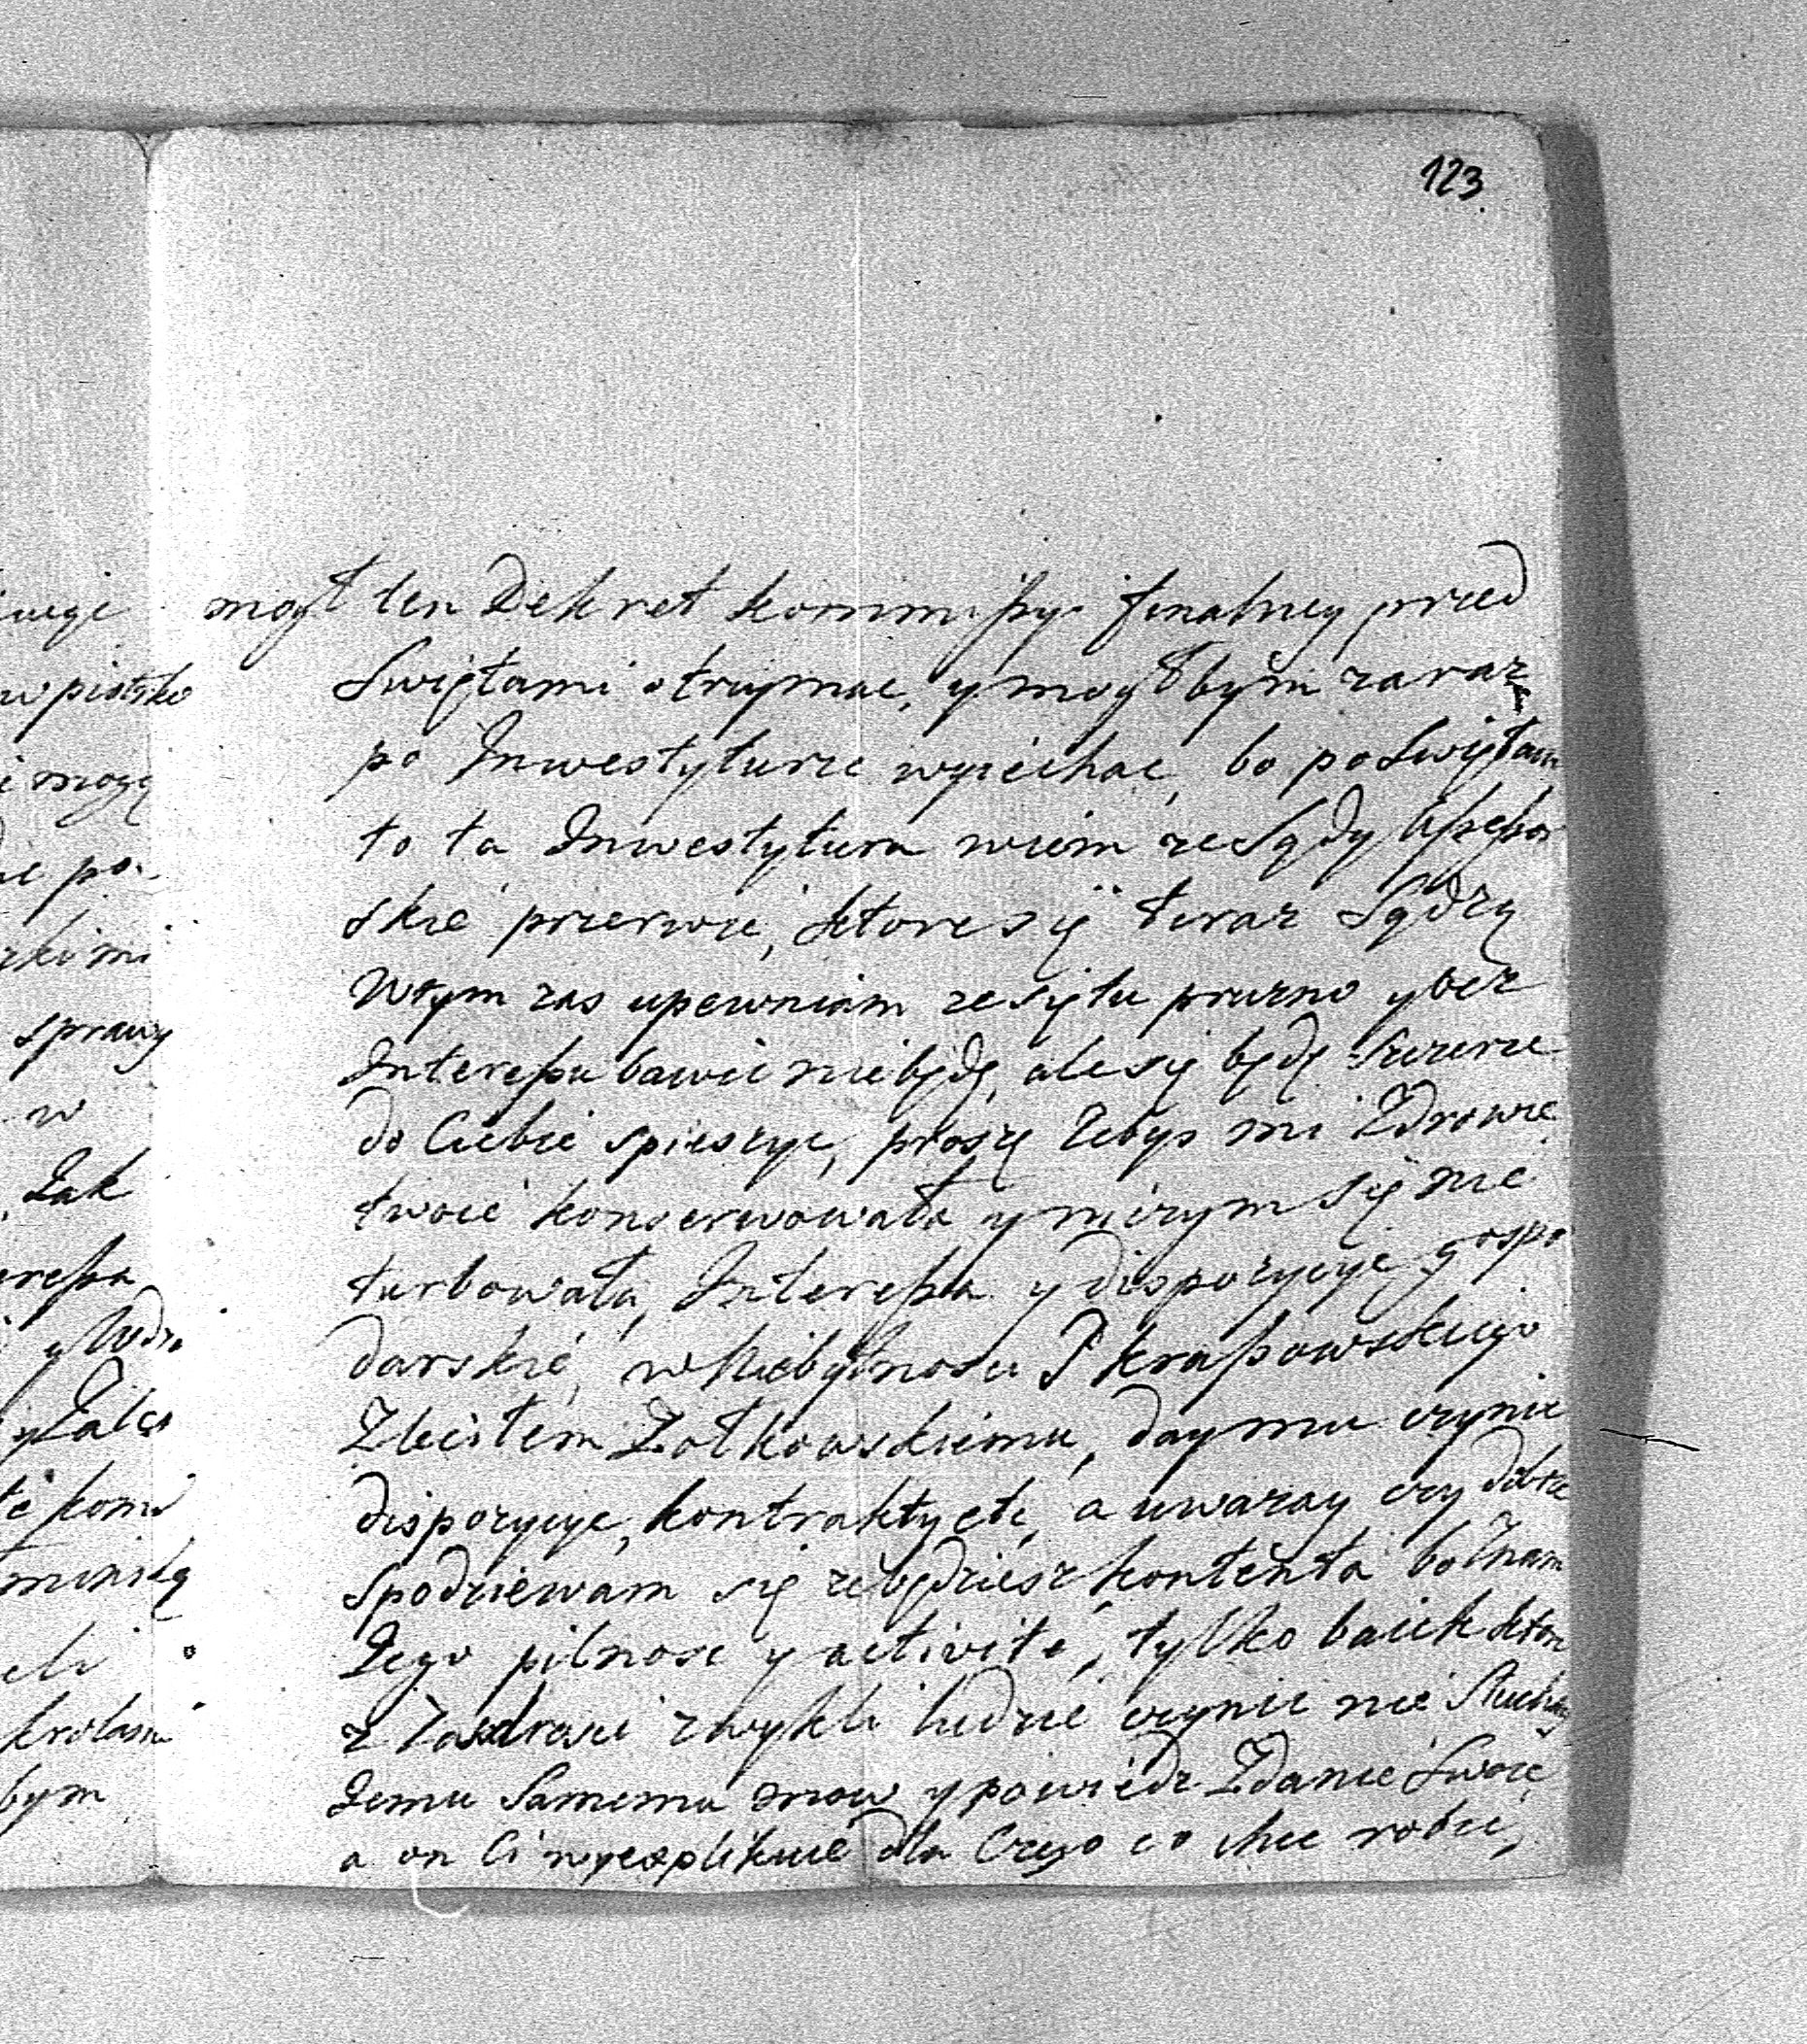 123
mogł ten Dekret kommissyi finalney przed
Swiętami otrzymac, y mogłbym zaraz
po Inwestyturze wyiechac, bo po Swiętam
to ta Inwestytura wiem ze Sądy Assesor
skie przerwie, ktore się teraz Sądzą
W tym zas upewniam ze się tu prozno y bez
Interessu bawic nie będę, ale się będę Szczerze
do Ciebie spieszyc, proszę Zebys mi Zdrowie
twoie konserwowała y niczym się nie
turbowała, Interessa y dispozycye gospo
darskie, w Niebytnosci P Krassowskiego
Zleciłem Zołkowskiemu, day mu czynic
dispozycye, kontrakty etc, a uwazay czy dobrze
spodziewam się ze będziesz kontenta bo Znam
Iego pilnosc y activité, tylko baiek ktore
z Zazdrosci zwykli ludzie czynic nie Słuchay
Iemu Samemu mow y powiedz Zdanie Swoie
a on Ci wyexplikuie dla Czego co chce robic,
wegi
w piotrko
i mogą
ie po
zki mi
sprawy
w
Iak
eressa
y Zales
te komi
minską
eli
krolasm
bym